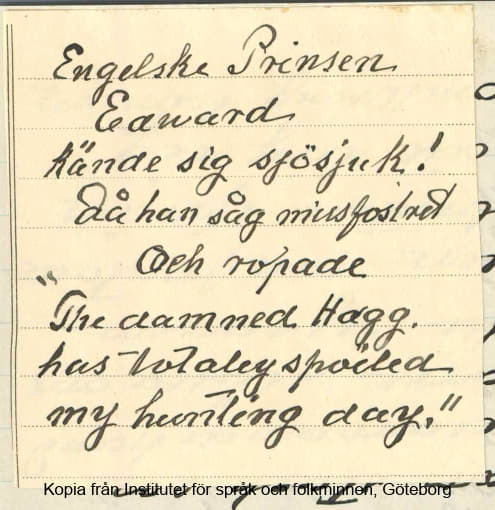 Engelske Prinsen
Edward
kände sig sjösjuk!
då han såg missfostret
Och ropade
"The damned Hagg.
has totaley spoiled
my hunting day."
Kopia från Institutet för språk och folkminnen, Göteborg